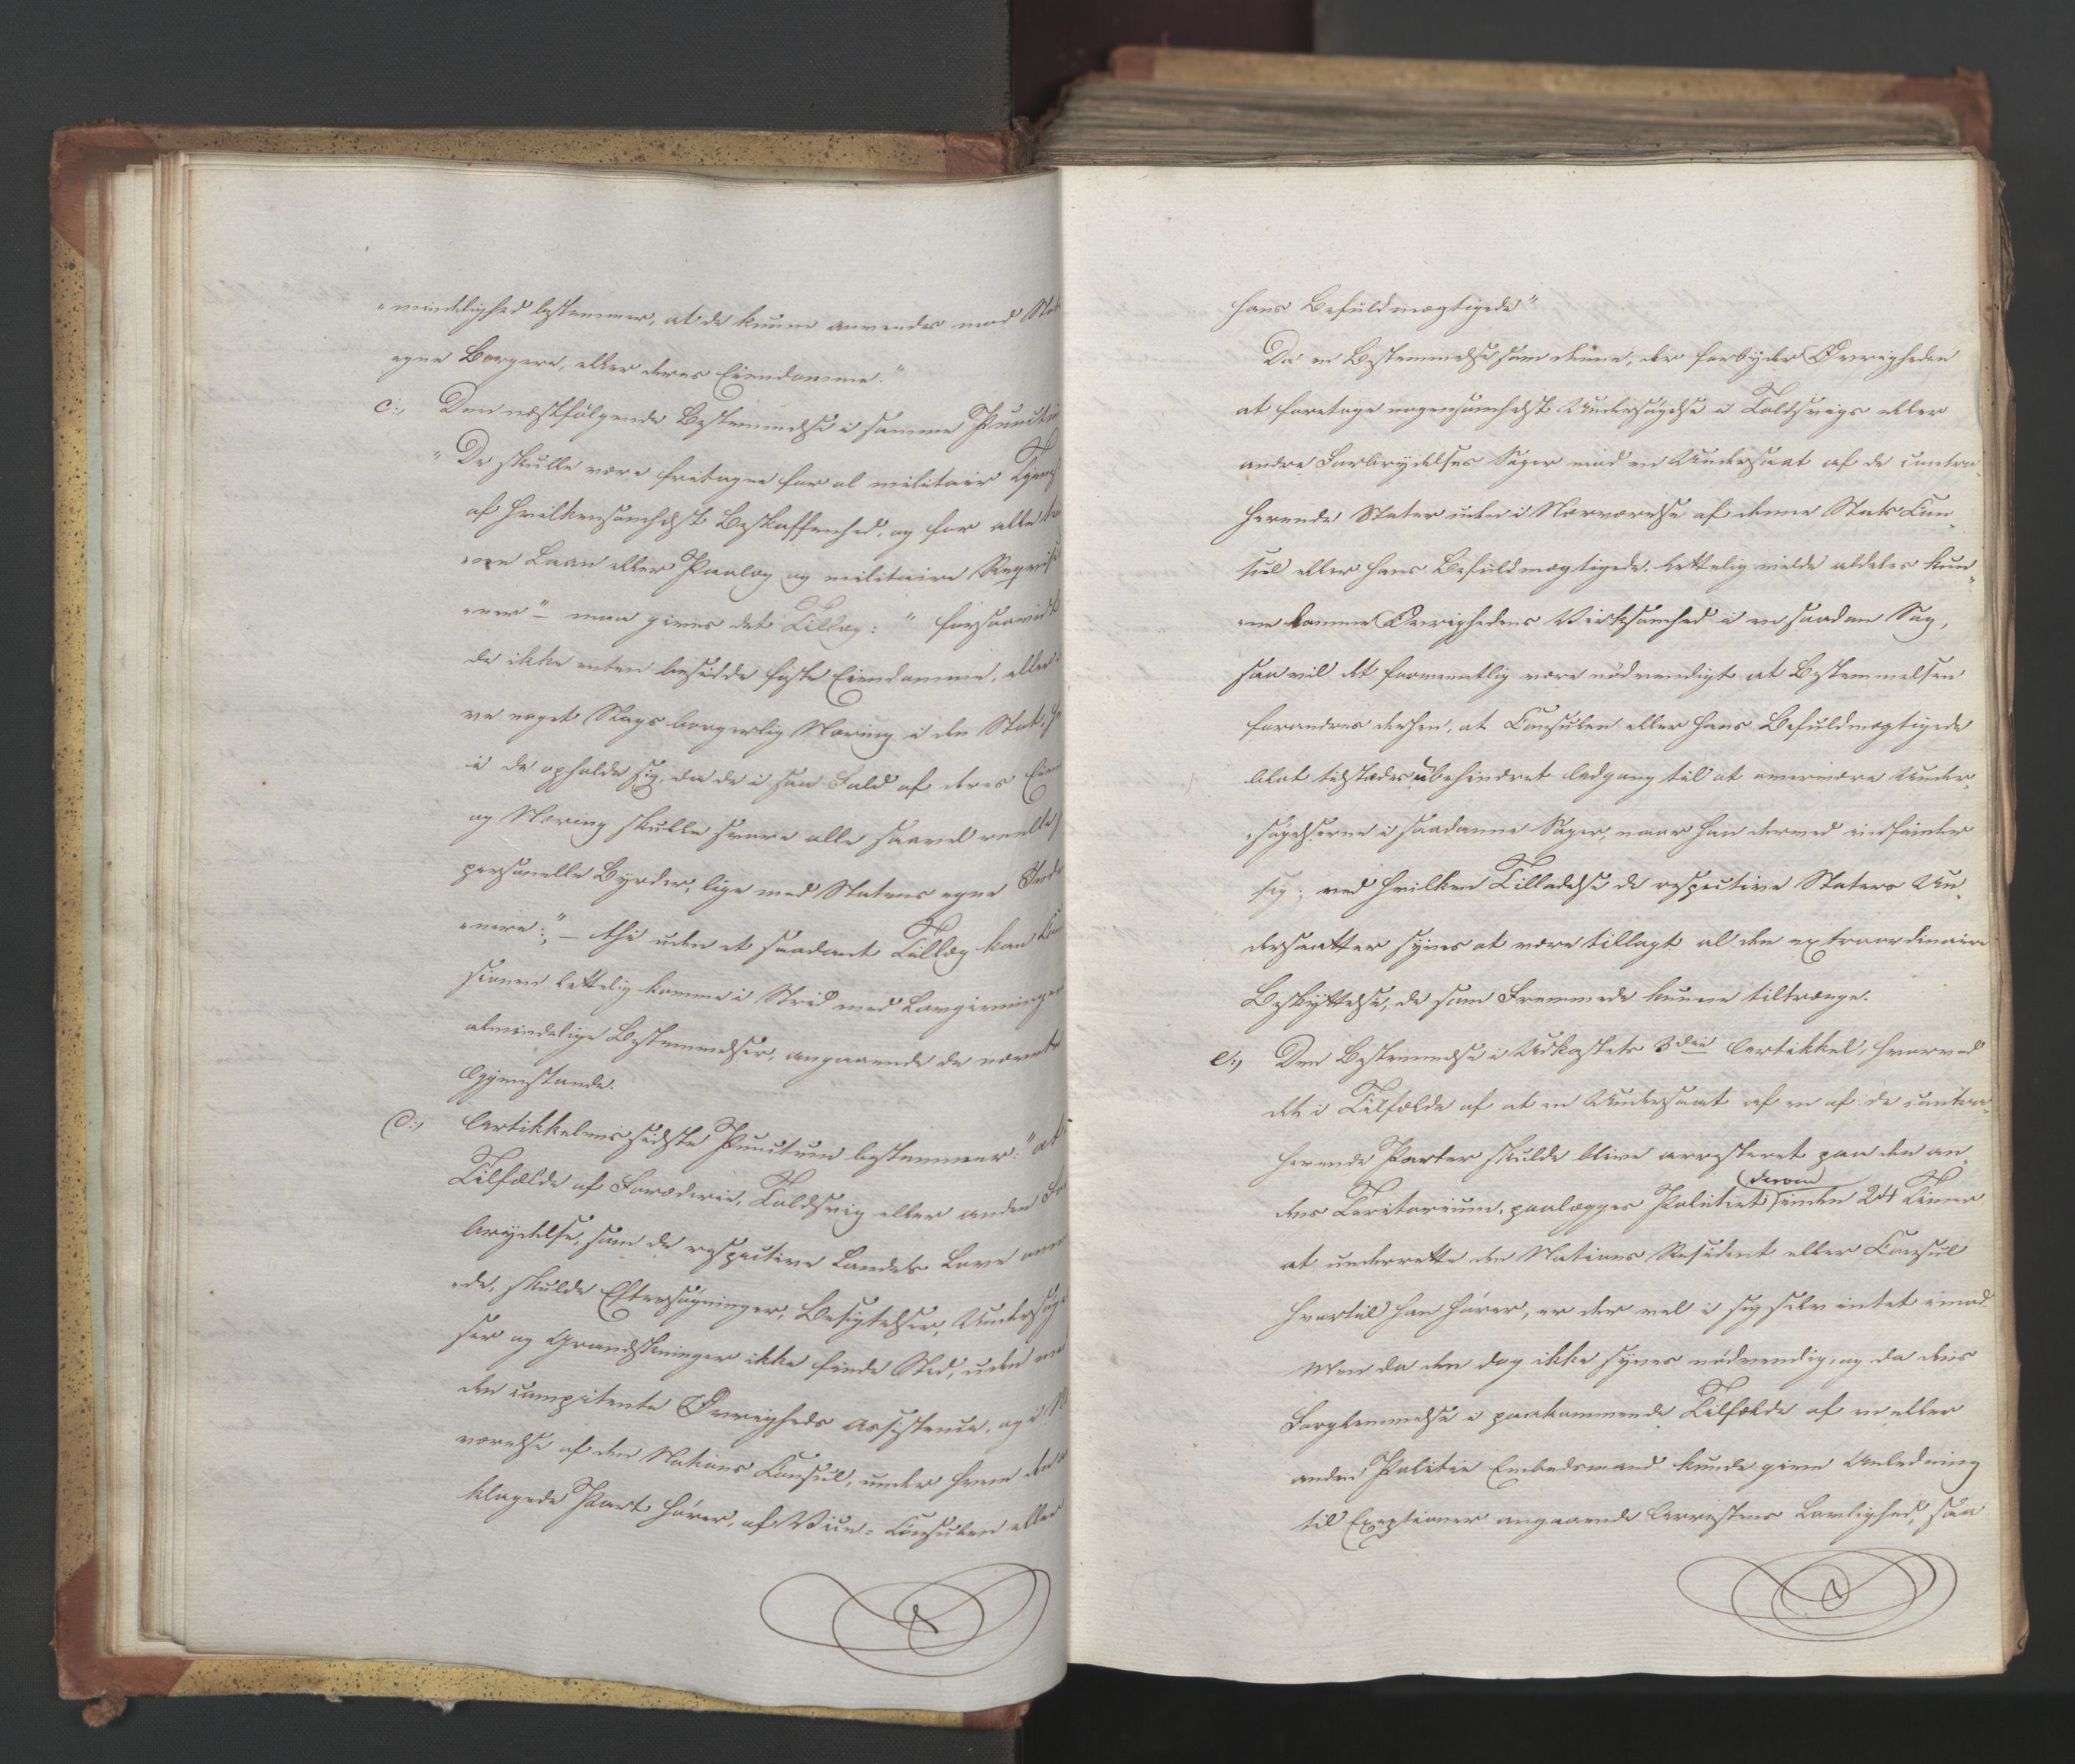 "mindelighed bestemmer, at de kunne anvendes mod Stat
egne Borgere, eller deres Eiendomme."
c:, Den næstfølgende Bestemmelse i samme Punctu
"De skulle være fritagne for al militair Tjenes
af hvilkensomhelst Beskaffenhed, og for alle
"ne Laan eller Paalæg og militaire Reqvisi
"ner" – maa gives det Tillæg: "forsaavidt
de ikke enten besidde faste Eiendomme, eller
ve noget Slags borgerlig Næring i den Stat, h
i de opholde sig, da de i saa Fald af deres Eien
og Næring skulle svare alle saavel reelle
personelle Byrder, lige med Statens egne Ind
"nere:" – thi uden et saadant Tillæg kan
sionen lettelig komme i Strid med Lovgivningens
almindelige Bestemmelser, angaaende de nævnte
Gjenstande.
d:, Artikkelens sidste Punctum bestemmer: "at
Tilfælde af Forræderie, Toldsvig eller anden For
brydelse, som de respective Landets Love
"de, skulde Eftersøgninger, Besigtelser, Undersøgel
ser og Grandskninger ikke finde Sted, uden med
den competente Øvrigheds Assistence, og i Nær
værelse af den Nations Consul, under hvem den
klagede Part hører, af Vice-Consulen eller
hans Befuldmægtigede"
Da en Bestemmelse som denne, der forbyder Øvrigheden
at foretage nogensomhelst Undersøgelse i Toldsvigs eller
andre Forbrydelses Sager mod en Undersaat af de contra-
herende Stater uden i Nærværelse af denne Stats Con-
sul eller hans Befuldmægtigede, lettelig vilde aldeles kun-
"ne lamme Øvrighedens Virksomhed i en saadan Sag,
saa vil det formeentlig være nødvendigt at Bestemmelsen
forandres derhen, at Consulen eller hans Befuldmægtigede
blot tilstædes ubehindret Adgang til at overvære Under-
"søgelserne i saadanne Sager, naar han dermed indfinder
sig; ved hvilken Tilladelse de respective Staters Un-
dersaatter synes at være tillagt al den extraordinaire
Beskyttelse, de som Fremmede kunne tiltrænge.
e:, Den Bestemmelse i Udkastets 3die Artikkel, hvorved
det i Tilfælde af at en Undersaat af en af de contra-
herende Parter skulde blive arresteret paa den an-
dens Territorium, paalægges Politiet (derom) inden 24 Timer
at underrette den Nations Resident eller Consul
hvortil han hører, er der vel i sig selv intet imod.
Men da den dog ikke synes nødvendig, og da dens
Forglemmelse i paakommende Tilfælde af en eller
anden Politie Embedsmand kunde give Anledning
til Exeptioner angaaende Arrestens Lovlighed, saa